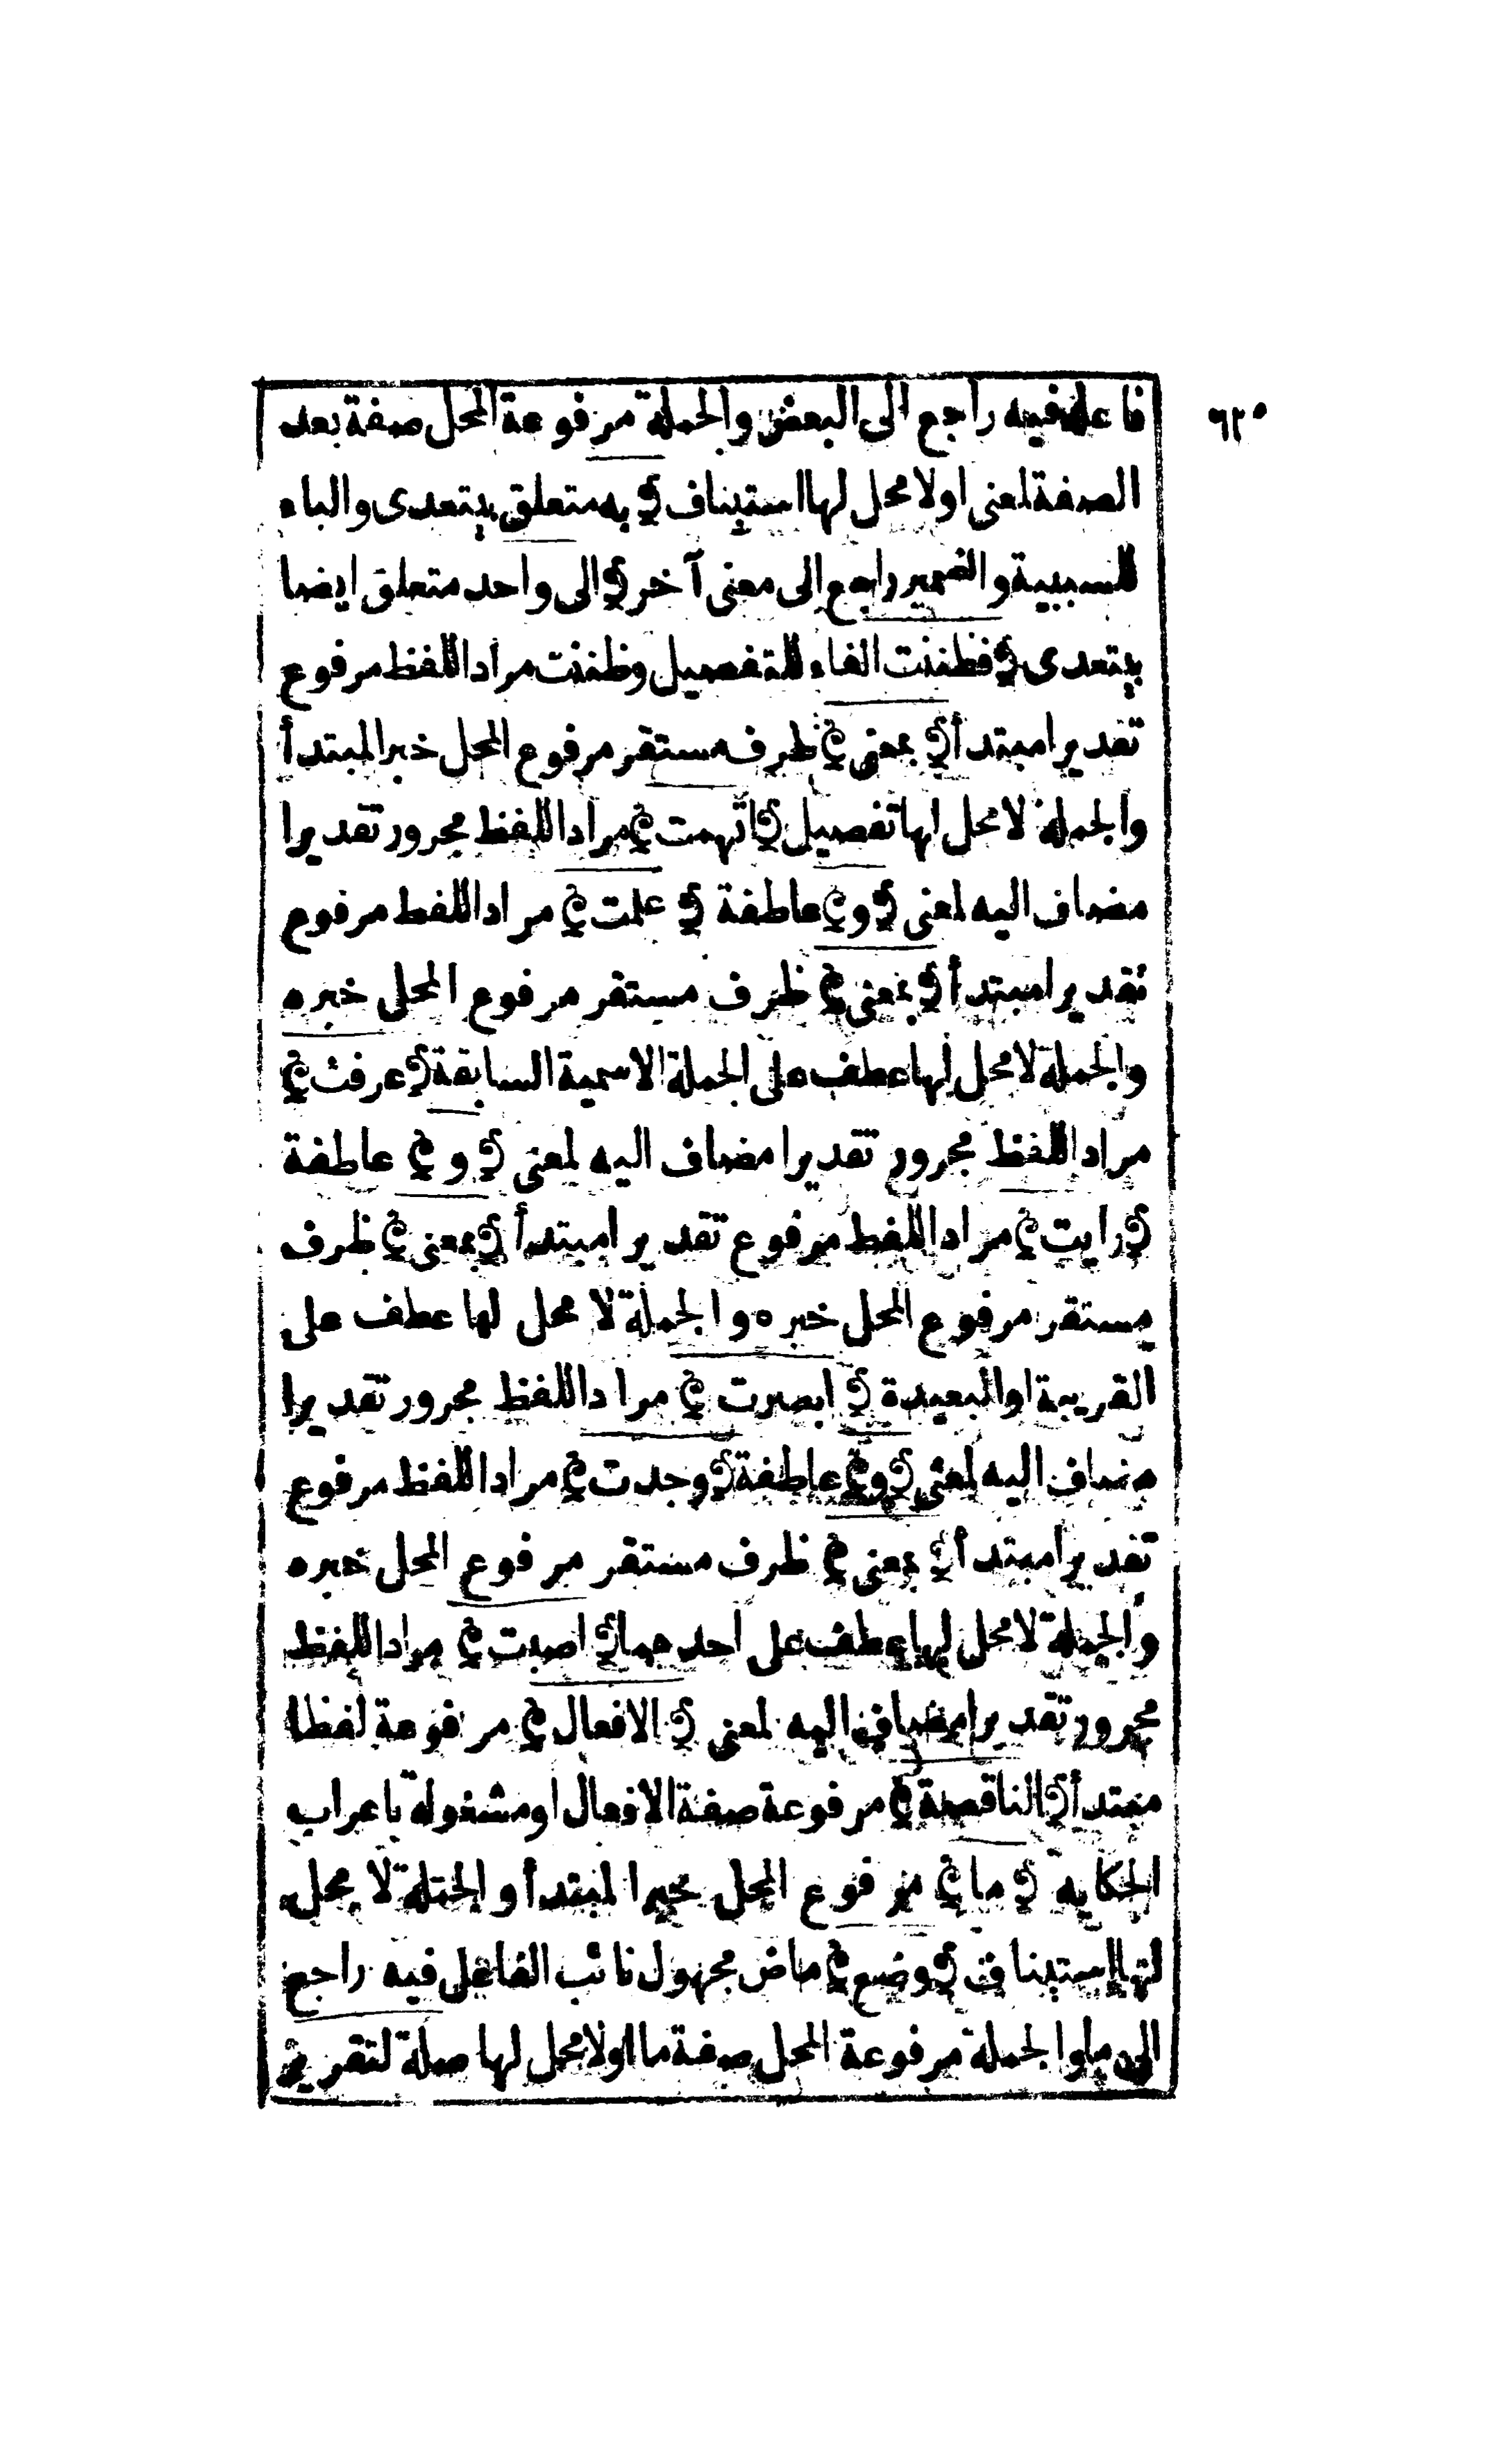 فاعله فيه راجع الى البعض والجملة مرفوعة المحل صفة بعد
٩٢٠
الصفة لمعنى اولا محل لها استيناف ﴿ به متعلق بيتعدى والباء
للسببية والضمير راجع الى معنى آخر ﴿ الى واحد متعلق ايضا
بيتعدى ﴿ فظننت الفاء للتفصيل وظننت مراد اللفظ مرفوع
تقديرا مبتدأ ﴿ بمعنى ﴾ ظرف مستقر مرفوع المحل خبر المبتدأ
والجملة لا محل لها تفصيل ﴿ اتهمت ﴾ مراد اللفظ مجرور تقديرا
مضاف اليه لمعنى ﴿ و ﴾ عاطفة ﴿ علمت ﴾ مراد اللفظ مرفوع
تقديرا مبتدأ ﴿ بمعنى ﴾ ظرف مستقر مرفوع المحل خبره
والجملة لا محل لها عطف على الجملة الاسمية السابقة ﴿ عرفت ﴾
مراد اللفظ مجرور تقديرا مضاف اليه لمعنى ﴿ و ﴾ عاطفة
﴿ رايت ﴾ مراد اللفظ مرفوع تقديرا مبتدأ ﴿ بمعنى ﴾ ظرف
مستقر مرفوع المحل خبره والجملة لا محل لها عطف على
القريبة او البعيدة ﴿ ابصرت ﴾ مراد اللفظ مجرور تقديرا
مضاف اليه لمعنى ﴿ و ﴾ عاطفة ﴿ وجدت ﴾ مراد اللفظ مرفوع
تقديرا مبتدأ ﴿ بمعنى ﴾ ظرف مستقر مرفوع المحل خبره
والجملة لا محل لها عطف على احدهما ﴿ اصبت ﴾ مراد اللفظ
مجرور تقديرا مضاف اليه لمعنى ﴿ الافعال ﴾ مرفوعة لفظا
مبتدأ ﴿ الناقصة ﴾ مرفوعة صفة الافعال او مشغولة باعراب
الحكاية ﴿ ما ﴾ مرفوع المحل خبر المبتدأ والجملة لا محل
لها استيناف ﴿ وضع ﴾ ماض مجهول نائب الفاعل فيه راجع
الى ما والجملة مرفوعة المحل صفة ما اولا محل لها صلة لتقرير